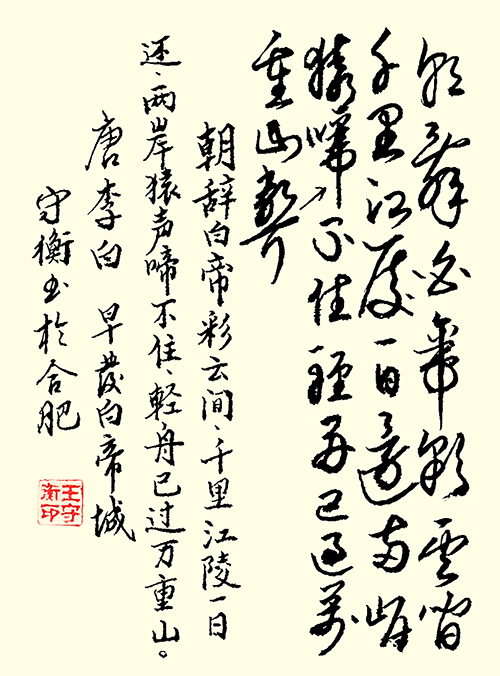 朝辭白帝彩雲間
千里江陵一日還兩岸
猿啼不住輕舟已過萬
重山聲
朝辞白帝彩云间、千里江陵一日
还、两岸猿声啼不住、輕舟已过万重山。
唐李白 早發白帝城
守衡书於合肥
王守衡印